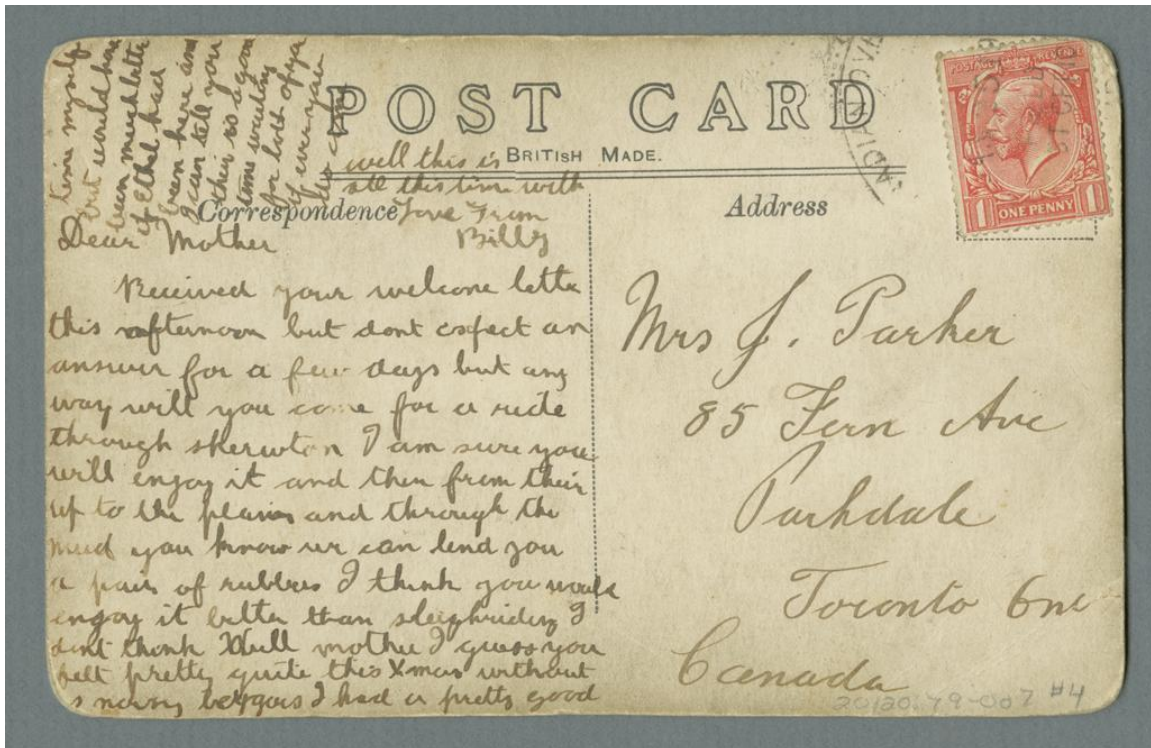 POST CARD
BRITISH MADE.
Correspondence
Address
Dear Mother
Received your welcome letter
this afternoon but dont expect an
answer for a few days but any
way will you come for a ride
through I am sure you
will enjoy it and then from their
up to the plains and through the
mud you know we can lend you
a pair of rubbers I think you would
enjoy it better than sleighriding I
dont think Well mother I guess you
felt pretty quite this Xmas without
s noisy beggars I had a pretty good
time myself
but would have
been much better
if Ethel had
been here and
I can tell you
their is a good
time waiting
for both of you
if ever you
do
well this is
all this time with
Love From
Billy
POSTAGE REVENUE
1 ONE PENNY 1
Mrs J. Parker
85 Fern Ave
Parkdale
Toronto Ont
Canada
#4